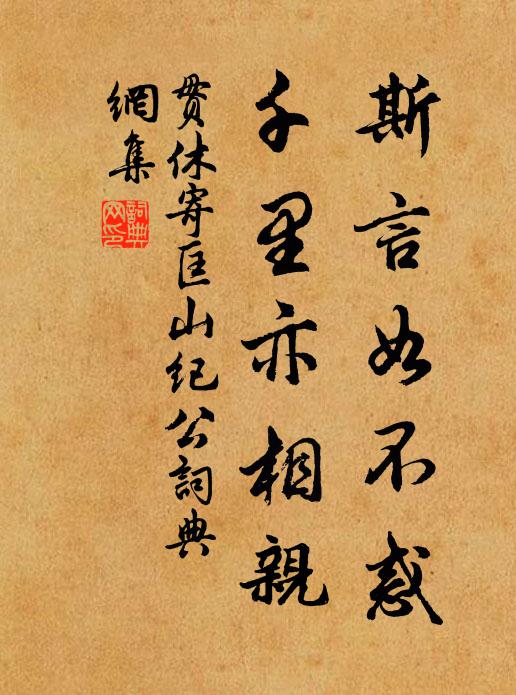 斯言如不惑
千里亦相親
貫休寄匡山紀公詞典
網集
詞典網印